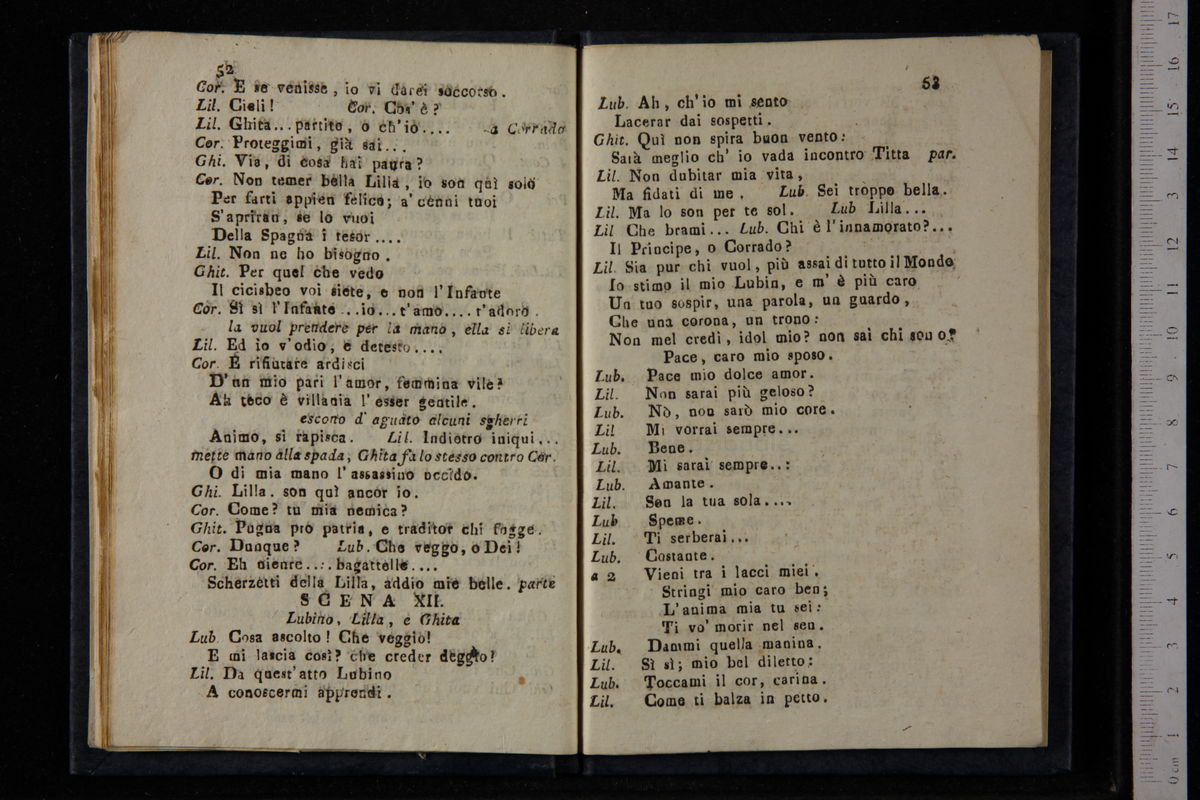 52
Cor. E se venisse, io vi darei soccorso.
Lil. Cieli! Cor. Cos' è?
Lil. Ghita... partite, o ch' io.... a Corrado
Cor. Proteggimi, già sai...
Ghi. Via, di cosa hai paura?
Cor. Non temer bella Lilla, io son quì solo
Per farti appien felice; a' cenni tuoi
S'apriran, se lo vuoi
Della Spagna i tesor....
Lil. Non ne ho bisogno.
Ghit. Per quel che vedo
Il cicisbeo voi siete, e non l'Infante
Cor. Sì sì l'Infante ...io...t'amo....t'adoro.
la vuol prendere per la mano, ella si libera
Lil. Ed io v'odio, e detesto....
Cor. E rifiutare ardisci
D'un mio pari l'amor, femmina vile?
Ah teco è villania l'esser gentile.
escono d'aguato alcuni sgherri
Animo, si rapisca. Lil. Indietro iniqui...
mette mano alla spada, Ghita fa lo stesso contro Cor.
O di mia mano l'assassino occido.
Ghi. Lilla. son quì ancor io.
Cor. Come? tu mia nemica?
Ghit. Pugna pro patria, e traditor chi fugge.
Cor. Dunque? Lub. Che veggo, o Dei!
Cor. Eh niente..:.bagattelle....
Scherzetti della Lilla, addio mie belle. parte
SCENA XII.
Lubino, Lilla, e Ghita
Lub. Cosa ascolto! Che veggio!
E mi lascia così? che creder deggio?
Lil. Da quest'atto Lubino
A conoscermi apprendi.
53
Lub. Ah, ch'io mi sento
Lacerar dai sospetti.
Ghit. Quì non spira buon vento:
Sarà meglio ch' io vada incontro Titta par.
Lil. Non dubitar mia vita,
Ma fidati di me. Lub. Sei troppo bella.
Lil. Ma lo son per te sol. Lub Lilla...
Lil Che brami... Lub. Chi è l'innamorato?...
Il Principe, o Corrado?
Lil. Sia pur chi vuol, più assai di tutto il Mondo
Io stimo il mio Lubin, e m' è più caro
Un tuo sospir, una parola, un guardo,
Che una corona, un trono:
Non mel credi, idol mio? non sai chi sono?
Pace, caro mio sposo.
Lub. Pace mio dolce amor.
Lil. Non sarai più geloso?
Lub. Nò, non sarò mio core.
Lil Mi vorrai sempre...
Lub. Bene.
Lil. Mi sarai sempre..:
Lub. Amante.
Lil. Son la tua sola....
Lub Speme.
Lil. Ti serberai...
Lub. Costante.
a 2 Vieni tra i lacci miei.
Stringi mio caro ben;
L'anima mia tu sei:
Ti vo' morir nel sen.
Lub. Dammi quella manina.
Lil. Sì sì; mio bel diletto:
Lub. Toccami il cor, carina.
Lil. Come ti balza in petto.
0 cm 1 2 3 4 5 6 7 8 9 10 11 12 13 14 15 16 17